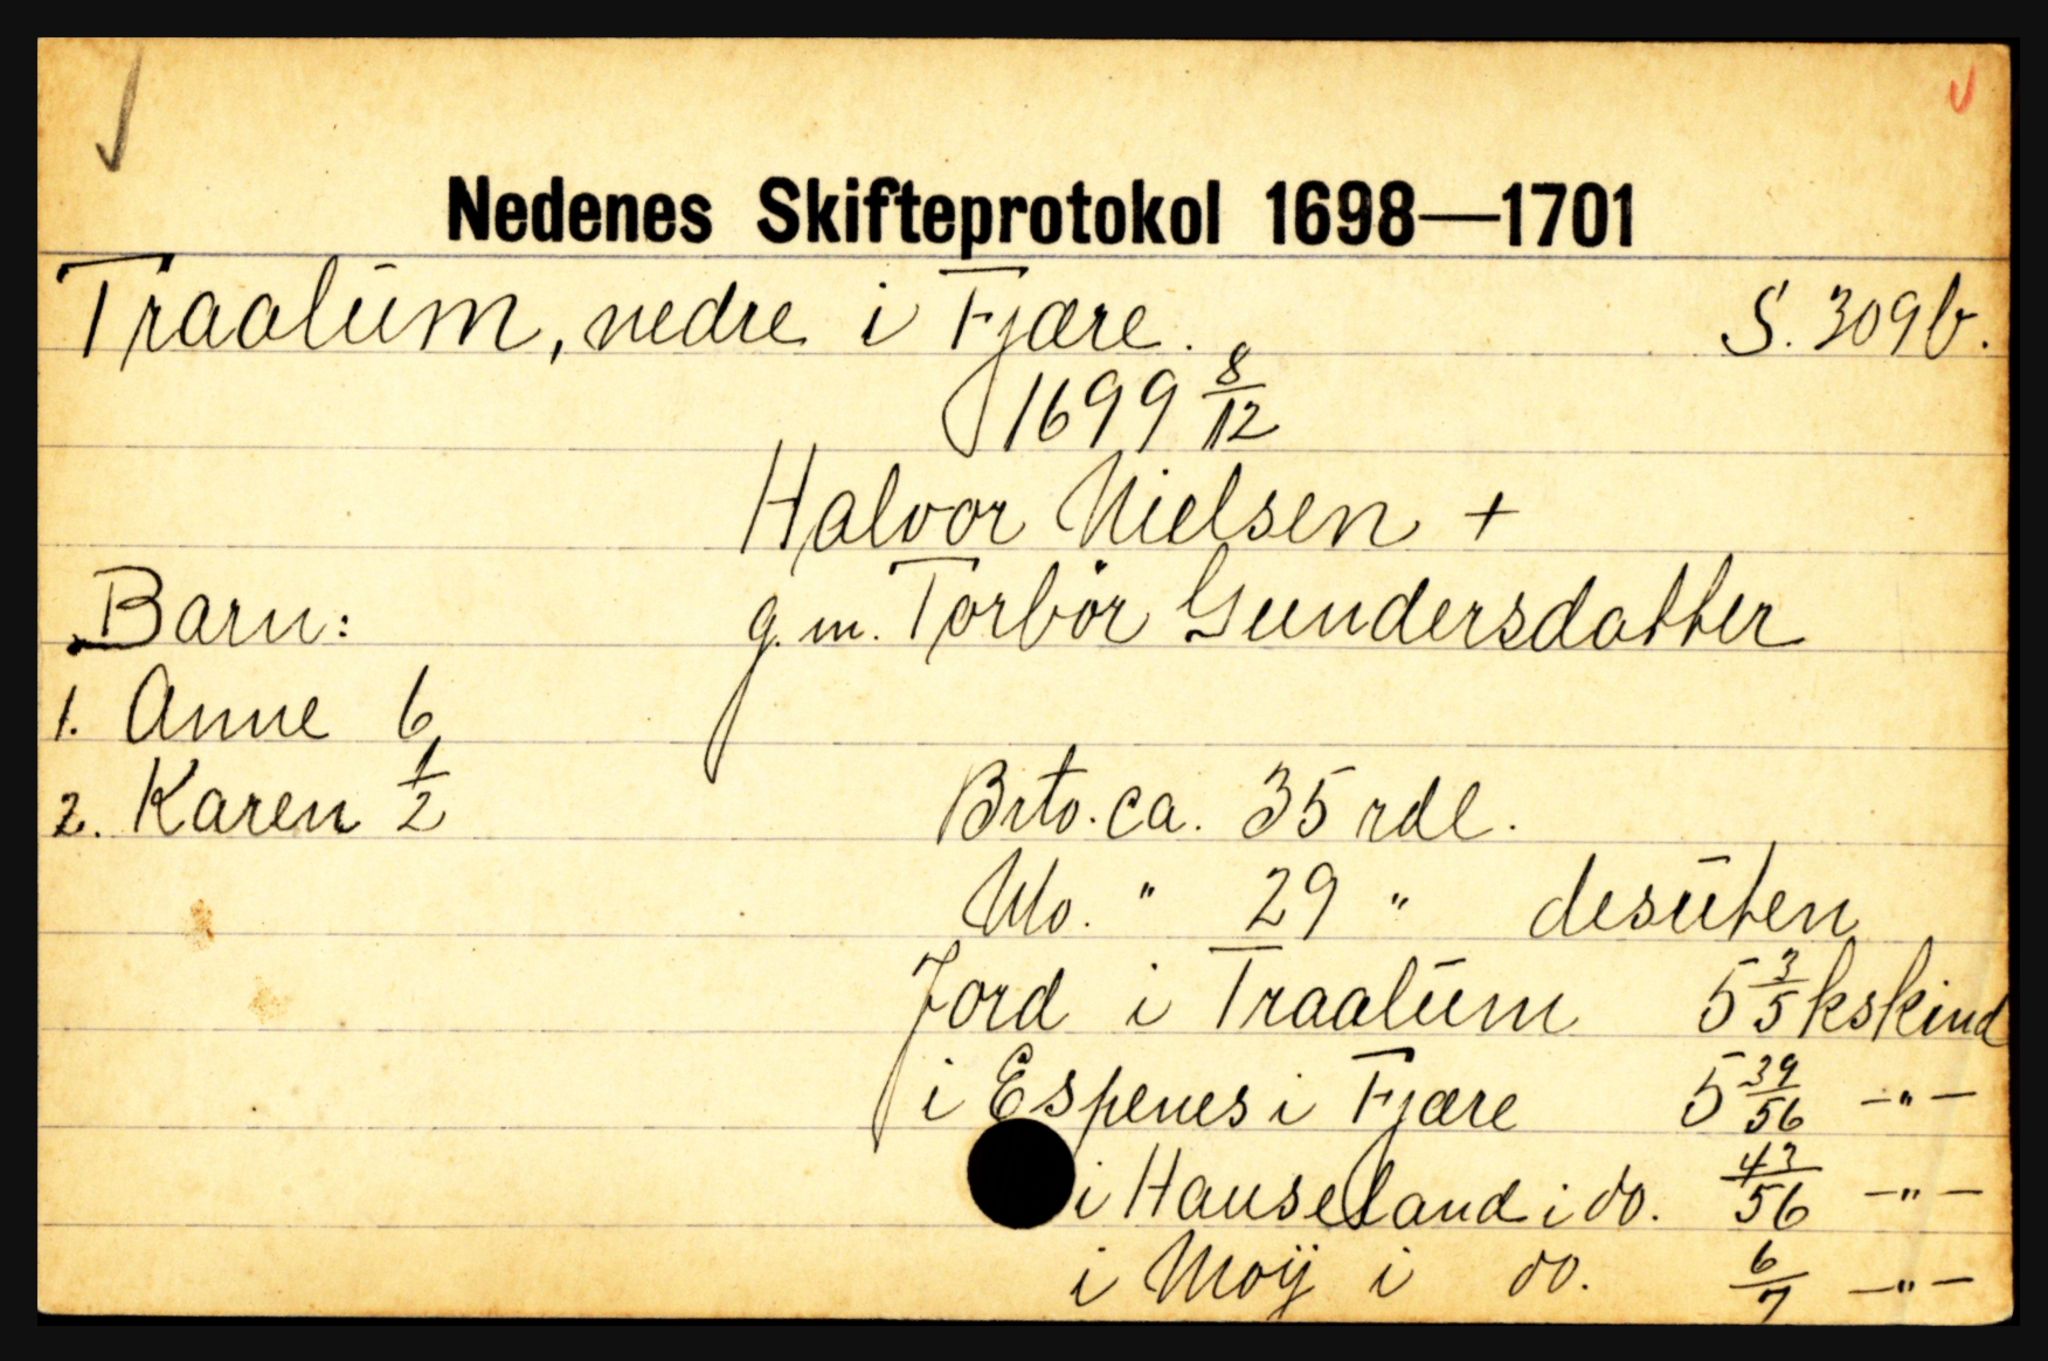 Nedenes Skifteprotokol 1698—1701
Traalum, nedre i Fjære. S. 309b.
1699 8/12
Halvor Nielsen +
Barn: g. m. Torbør Gundersdatter
1. Anne 6
2. Karen 1/2 Brto. ca. 35 rdl.
Nto. " 29 " desuten
Jord i Traalum 5 3/5 kskind
i Espenes i Fjære 5 39/56 —"—
i Hauseland i do. 43/56 —"—
i Moÿ i do. 6/7 —"—